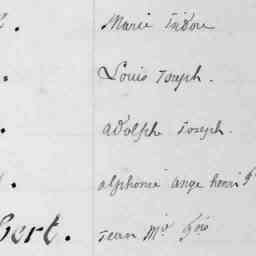 Marie isidore
Louis Joseph.
adolphe Joseph.
alphonse ange henri
bert. Jean